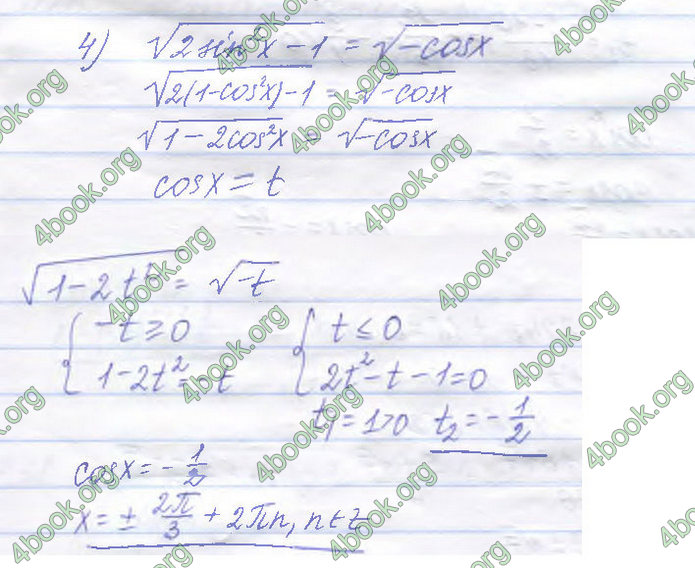 4) √(2sin²x − 1) = √(−cosx)
√(2(1−cos²x)−1) = √(−cosx)
√(1−2cos²x) = √(−cosx)
cosx = t
√(1−2t²) = √(−t)
{ −t ≥ 0 { t ≤ 0
1−2t² = −t 2t² − t − 1 = 0
t₁ = 1 > 0 t₂ = −1/2
cosx = −1/2
x = ± 2π/3 + 2πn, n∈Z
4book.org